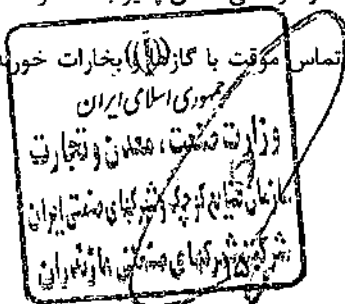 تماس موقت با گازها، بخارات
جمهوری اسلامی ایران
وزارت صنعت، معدن و تجارت
سازمان صنایع کوچک و شهرکهای صنعتی ایران
شرکت شهرکهای صنعتی مازندران